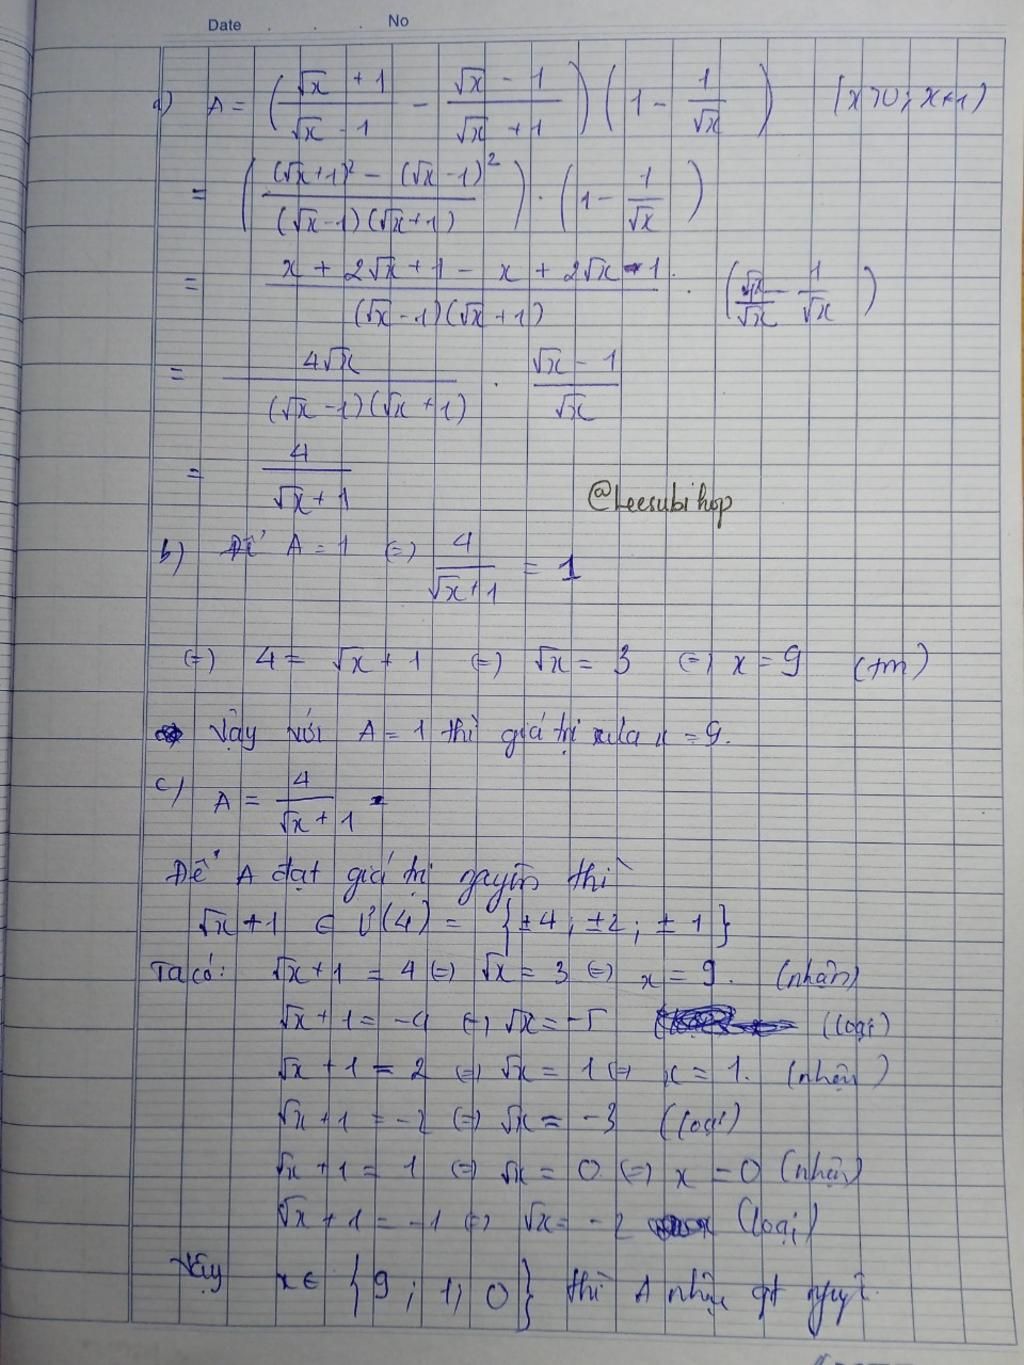 Date . . . No
a) A = ( (√x + 1)/(√x - 1) - (√x - 1)/(√x + 1) ) ( 1 - 1/√x ) (x>0; x≠1)
= ( ((√x+1)² - (√x-1)²)/((√x-1)(√x+1)) ) . ( 1 - 1/√x )
= (x + 2√x + 1 - x + 2√x - 1)/((√x-1)(√x+1)) . ( √x/√x - 1/√x )
= 4√x/((√x-1)(√x+1)) . (√x - 1)/√x
= 4/(√x + 1)
@Leesubihop
b) Để A = 1 (=) 4/(√x+1) = 1
(=) 4 = √x + 1 (=) √x = 3 (=) x = 9 (tm)
Vậy với A = 1 thì giá trị của x = 9.
c) A = 4/(√x + 1)
Để A đạt giá trị nguyên thì
√x + 1 ∈ Ư(4) = {±4; ±2; ±1}
Ta có: √x + 1 = 4 (=) √x = 3 (=) x = 9. (nhận)
√x + 1 = -4 (=) √x = -5 (loại)
√x + 1 = 2 (=) √x = 1 (=) x = 1. (nhận)
√x + 1 = -2 (=) √x = -3 (loại)
√x + 1 = 1 (=) √x = 0 (=) x = 0 (nhận)
√x + 1 = -1 (=) √x = -2 (loại)
Vậy x ∈ {9; 1; 0} thì A nhận gt nguyê